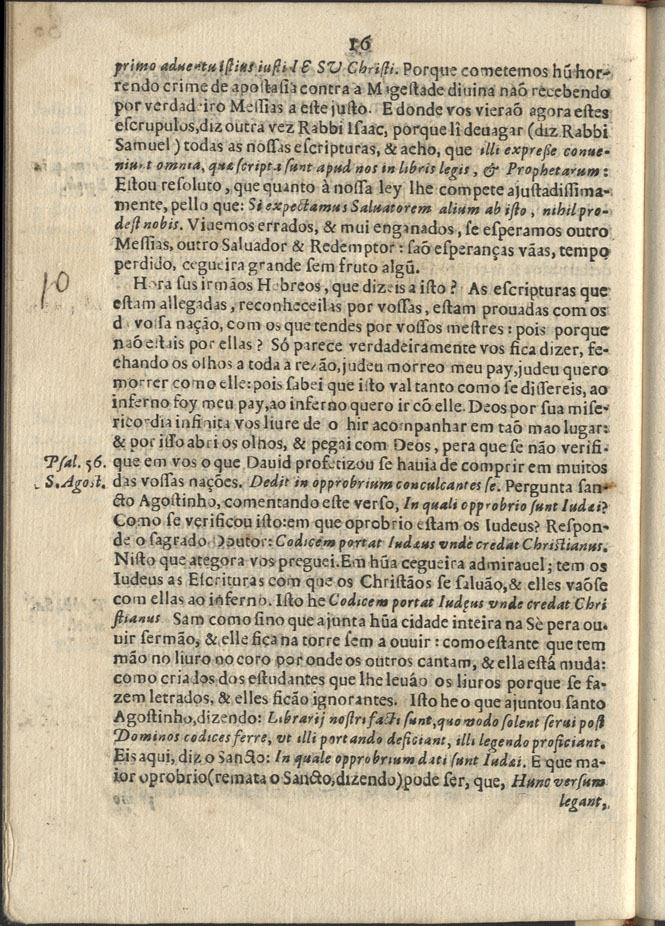 16
primo aduentu istius iusti IESV Christi. Porque cometemos hũ hor-
rendo crime de apostasia contra a Magestade diuina naõ recebendo
por verdadeiro Messias a este justo. E donde vos vieraõ agora estes
escrupulos, diz outra vez Rabbi Isaac, porque lî deuagar (diz Rabbi
Samuel) todas as nossas escripturas, & acho, que illi expreße conue-
niunt omnia, quæ scripta sunt apud nos in libris legis, & Prophetarum:
Estou resoluto, que quanto à nossa ley lhe compete ajustadissima-
mente, pello que: Si expectamus Saluatorem alium ab isto, nihil pro-
dest nobis. Viuemos errados, & mui enganados, se esperamos outro
Messias, outro Saluador & Redemptor: saõ esperanças vãas, tempo
perdido, cegueira grande sem fruto algũ.
10
Hora sus irmãos Hebreos, que dizeis a isto? As escripturas que
estam allegadas, reconheceilas por vossas, estam prouadas com os
d vossa nação, com os que tendes por vossos mestres: pois porque
naõ estais por ellas? Só parece verdadeiramente vos fica dizer, fe-
chando os olhos a toda a rezão, judeu morreo meu pay, judeu quero
morrer como elle: pois sabei que isto val tanto como se dissereis, ao
inferno foy meu pay, ao inferno quero ir cõ elle. Deos por sua mise-
ricordia infinita vos liure de o hir acompanhar em taõ mao lugar:
& por isso abri os olhos, & pegai com Deos, pera que se não verifi-
Psal. 56. que em vos o que Dauid profetizou se hauia de comprir em muitos
S. Agost. das vossas nações. Dedit in opprobrium conculcantes se. Pergunta san-
cto Agostinho, comentando este verso, In quali opprobrio sunt Iudæi?
Como se verificou isto: em que oprobrio estam os Iudeus? Respon-
de o sagrado Doutor: Codicem portat Iudæus vnde credat Christianus.
Nisto que ategora vos preguei. Em hũa cegueira admirauel; tem os
Iudeus as Escrituras com que os Christãos se saluão, & elles vaõse
com ellas ao inferno. Isto he Codicem portat Iudęus vnde credat Chri
stianus Sam como sino que ajunta hũa cidade inteira na Sè pera ou-
uir sermão, & elle fica na torre sem a ouuir: como estante que tem
mão no liuro no coro por onde os outros cantam, & ella está muda:
como criados dos estudantes que lhe leuão os liuros porque se fa-
zem letrados, & elles ficão ignorantes. Isto he o que ajuntou santo
Agostinho, dizendo: Librarij nostri facti sunt, quomodo solent serui post
Dominos codices ferre, vt illi portando deficiant, illi legendo proficiant.
Eis aqui, diz o Sancto: In quale opprobrium dati sunt Iudæi. E que ma-
ior oprobrio (remata o Sancto, dizendo) pode ser, que, Hunc versum
legant,